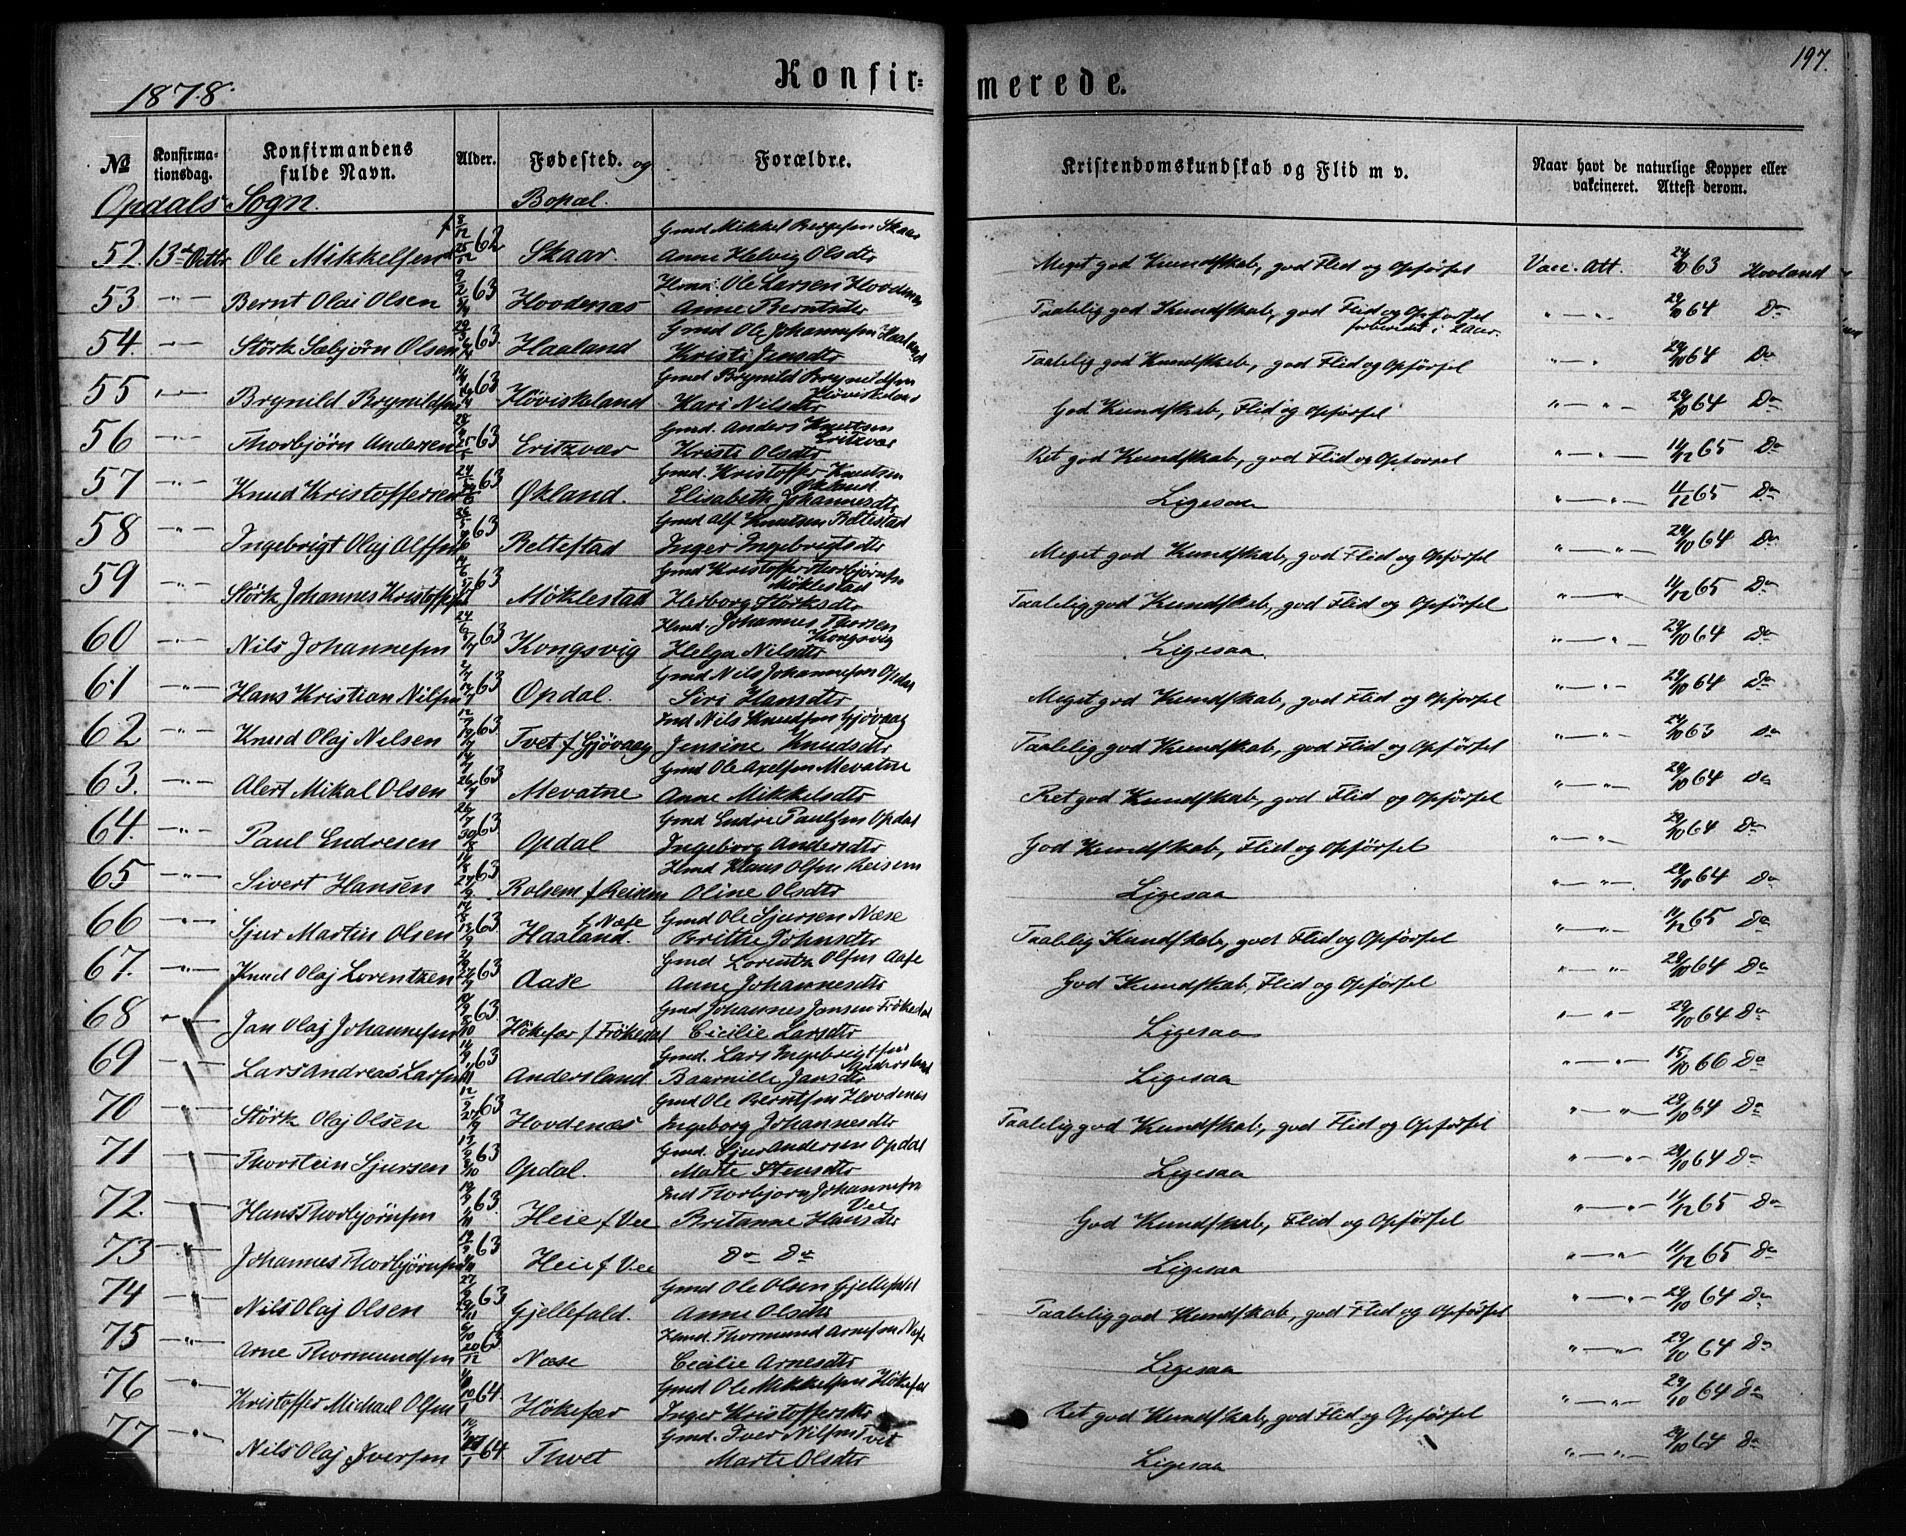 197.
1878.
Konfirmerede.
№ Konfirmationsdag. Konfirmandens fulde Navn. Alder. Fødested. og Bopæl. Forældre. Kristendomskundskab og Flid m v. Naar havt de naturlige Kopper eller vakcineret. Attest derom.
Opdals Sogn.
52. 13de Octbr Ole Mikkelsen 62 Skaar. Gmd Mikkel Skaar Anne Helvig Olsdtr Meget god Kundskab, god Flid og Opførsel Vacc. Att. 63 Hovland
53. -"- Bernt Olai Olsen 63 Hovdenæs Ole Larsen Hovdenæs Anne Berntsdtr Taalelig god Kundskab, god Flid og Opførsel " — " 29/10 64 Do
forberedt i 2 Aar.
54. -"- Størk Sæbjørn Olsen 63 Haaland Gmd Ole Johannesen Haaland Kristi Jensdtr Taalelig god Kundskab, god Flid og Opførsel " — " 29/10 64 Do
55 -"- Brynild Brynildsen 63 Høviskeland Gmd Brynild Brynildsen Høviskeland Kari Nilsdtr God Kundskab, Flid og Opførsel " — " 29/10 64 Do
56 -"- Thorbjørn Andersen 63 Eritzvær Gmd. Anders Knutsen Eritzvær Kristi Olsdtr Ret god Kundskab, god Flid og Opførsel " — " 11/12 65 Do
57 -"- Knud Kristoffersen 63 Økland. Gmd. Kristoffer Knutsen Økland Elisabeth Johannesdtr Ligesaa " — " 11/12 65 Do
58 -"- Ingebrigt Olaj Alfsen 63 Beltestad Gmd Alf Knutsen Beltestad Inger Ingebrigtsdtr Meget god Kundskab, god Flid og Opførsel " — " 29/10 64 Do
59 -"- Størk Johannes Kristoffersen 63 Møklestad Gmd Kristoffer Thorbjørnsen Møklestad Herborg Størksdtr Taalelig god Kundskab, god Flid og Opførsel " — " 11/12 65 Do
60 -"- Nils Johannesen 63 Kongsvig Hmd. Johannes Thorsen Kongsvig Helga Nilsdtr Ligesaa. " — " 29/10 64 Do
61 -"- Hans Kristian Nilsen 63 Opdal. Gmd Nils Johannesen Opdal Siri Hansdtr Meget god Kundskab, god Flid og Opførsel " — " 29/10 64 Do
62 -"- Knud Olaj Nilsen 63 Tvet f Gjøvaag Ind Nils Knudsen Gjøvaag Jensine Knudsdtr Taalelig god Kundskab, god Flid og Opførsel " — " 63 do
63. -"- Alert Mikal Olsen 63 Mevatne Gmd Ole Axelsen Mevatne Anne Mikkelsdtr Ret god Kundskab, god Flid og Opførsel " — " 29/10 64 do
64. -"- Paul Endresen 63 Opdal Gmd Endre Paulsen Opdal Ingeborg Andersdtr God Kundskab, Flid og Opførsel " — " 29/10 64 Do
65 -"- Sivert Hansen 63 Rolsem f Reisem Hmd Hans Olsen Reisem Oline Olsdtr Ligesaa " — " 29/10 64 Do
66 -"- Sjur Martin Olsen 63 Haaland. f Næse Gmd Ole Sjursen Næse Brithe Johnsdtr Taalelig Kundskab, god Flid og Opførsel " — " 11/12 65 Do
67. -"- Knud Olaj Lorentzen 63 Aase Gmd Lorentz Olsen Aase Anne Johannesdtr God Kundskab, Flid og Opførsel " — " 29/10 64 Do
68 -"- Jan Olaj Johannesen 63 Høkefær f Frøkedal Gmd Johannes Jansen Frøkedal Cecilie Larsdtr Ligesaa " — " 29/10 64 Do
69 -"- Lars Andreas Larsen 63 Andersland Gmd. Lars Ingebrigtsen Andersland Baarnille Jansdtr Ligesaa " — " 15/10 66 Do
70 -"- Størk Olaj Olsen 63 Hovdenæs Gmd Ole Berntsen Hovdenæs Ingeborg Johannesdtr Taalelig god Kundskab, god Flid og Opførsel " — " 29/10 64 Do
71 -"- Thorstein Sjursen 63 Opdal. Gmd. Sjur Andersen Opdal Matte Stensdtr Ligesaa " — " 29/10 64 Do
72. -"- Hans Thorbjørnsen 63 Heie f Vee Ind Thorbjørn Johannesen Vee Britanne Hansdtr God Kundskab, Flid og Opførsel " — " 11/12 65 Do
73 -"- Johannes Thorbjørnsen 63 Heie f Vee Do Do Ligesaa " — " 11/12 65 Do
74 -"- Nils Olaj Olsen 63 Gjellefald. Gmd Ole Olsen Gjellefald Anne Olsdtr Taalelig god Kundskab, god Flid og Opførsel " — " 29/10 64 Do
75 -"- Arne Thormundsen 63 Næse Hmd. Thormund Arnesen Næse Cecilie Arnesdtr Ligesaa " — " 29/10 64 Do
76 -"- Kristoffer Michael Olsen 64 Høkefær Gmd Ole Mikkelsen Høkefær Inger Kristoffersdtr Ret god Kundskab, god Flid og Opførsel " — " 29/10 64 do
77 -"- Nils Olaj Iversen 64 Thvet Gmd. Iver Nilsen Tvet Marte Olsdtr Ligesaa " — " 29/10 64 do